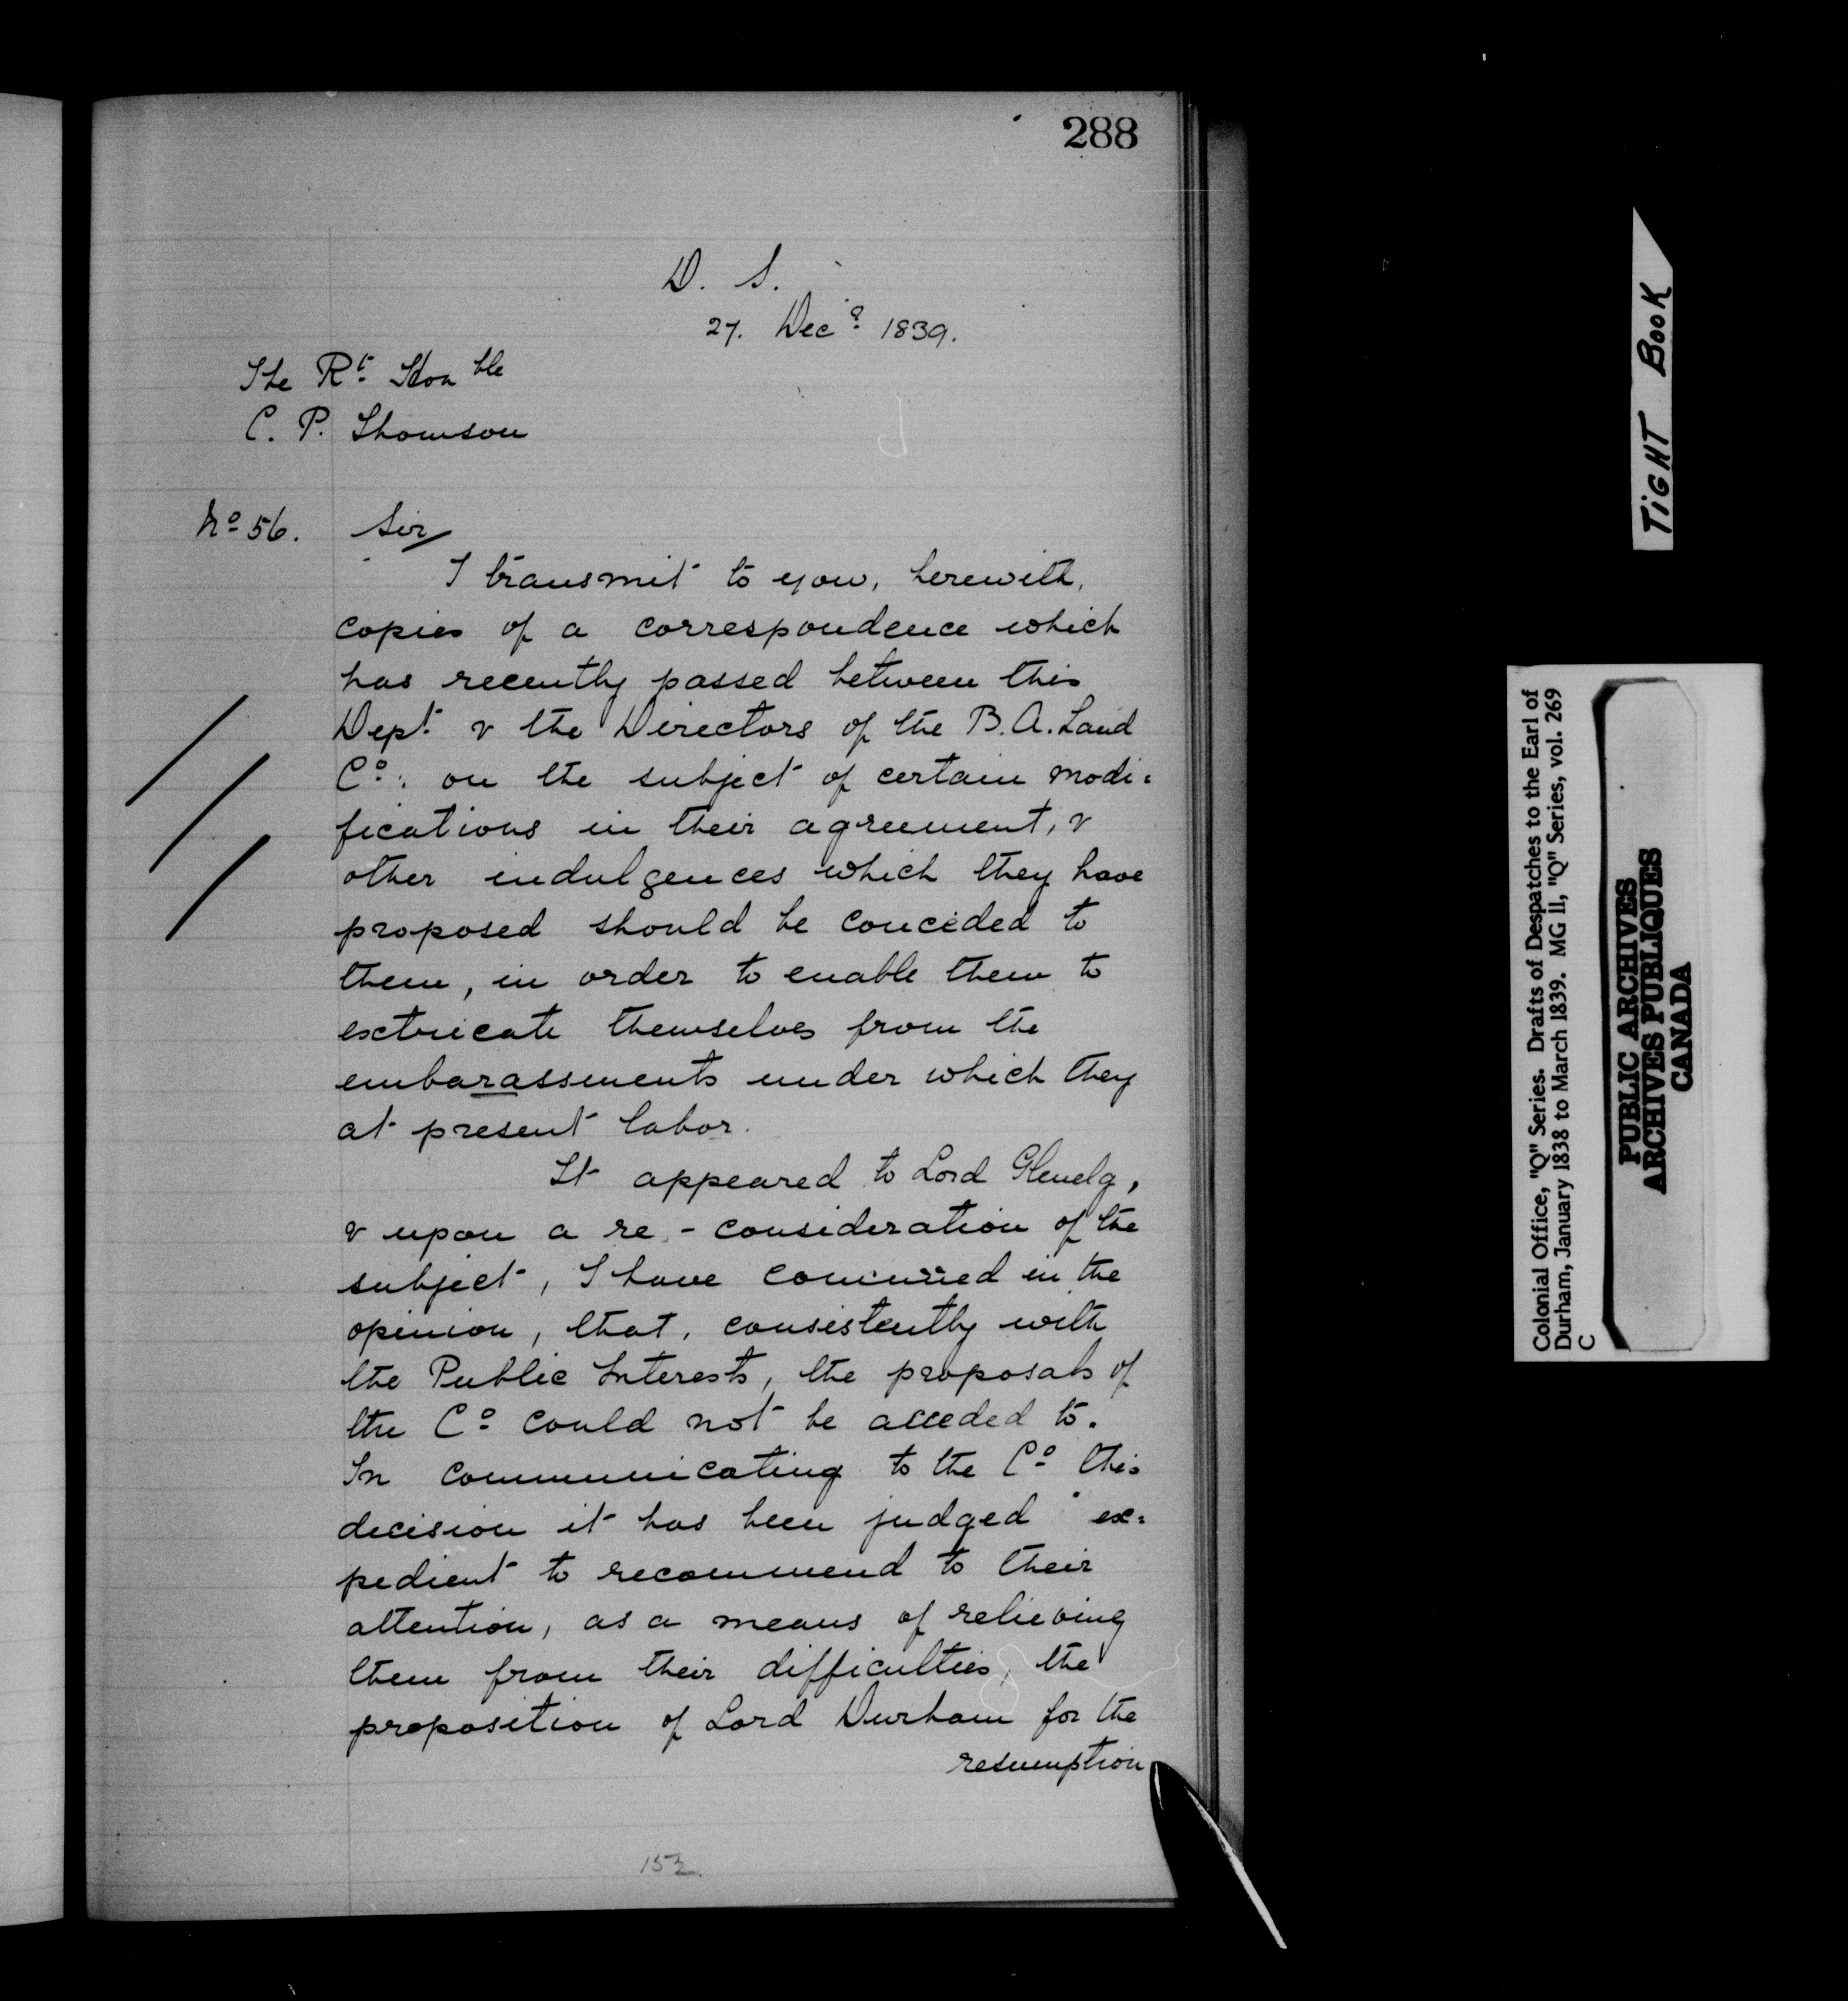 288
D. S.
27. Decr 1839.
The Rt. Honble
C. P. Thomson
No 56. Sir
I transmit to you, herewith,
copies of a correspondence which
has recently passed between this
Dept. & the Directors of the B. A. Land
Co: on the subject of certain modi=
fications in their agreement, &
other indulgences which they have
proposed should be conceded to
them, in order to enable them to
extricate themselves from the
embarassments under which they
at present labor.
It appeared to Lord Glenelg,
& upon a re-consideration of the
subject, I have concurred in the
opinion, that, consistently with
the Public Interests, the proposals of
the Co could not be acceded to.
In communicating to the Co this
decision it has been judged ex=
pedient to recommend to their
attention, as a means of relieving
them from their difficulties, the
proposition of Lord Durham for the
resumption
152.
TIGHT BOOK
Colonial Office, "Q" Series. Drafts of Despatches to the Earl of
Durham, January 1838 to March 1839. MG 11, "Q" Series, vol. 269
C
PUBLIC ARCHIVES
ARCHIVES PUBLIQUES
CANADA